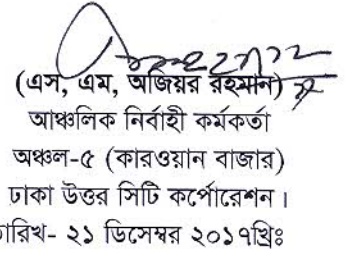 (এস, এম, অজিয়র রহমান)
আঞ্চলিক নির্বাহী কর্মকর্তা
অঞ্চল-৫ (কারওয়ান বাজার)
ঢাকা উত্তর সিটি কর্পোরেশন।
তারিখ- ২১ ডিসেম্বর ২০১৭খ্রিঃ